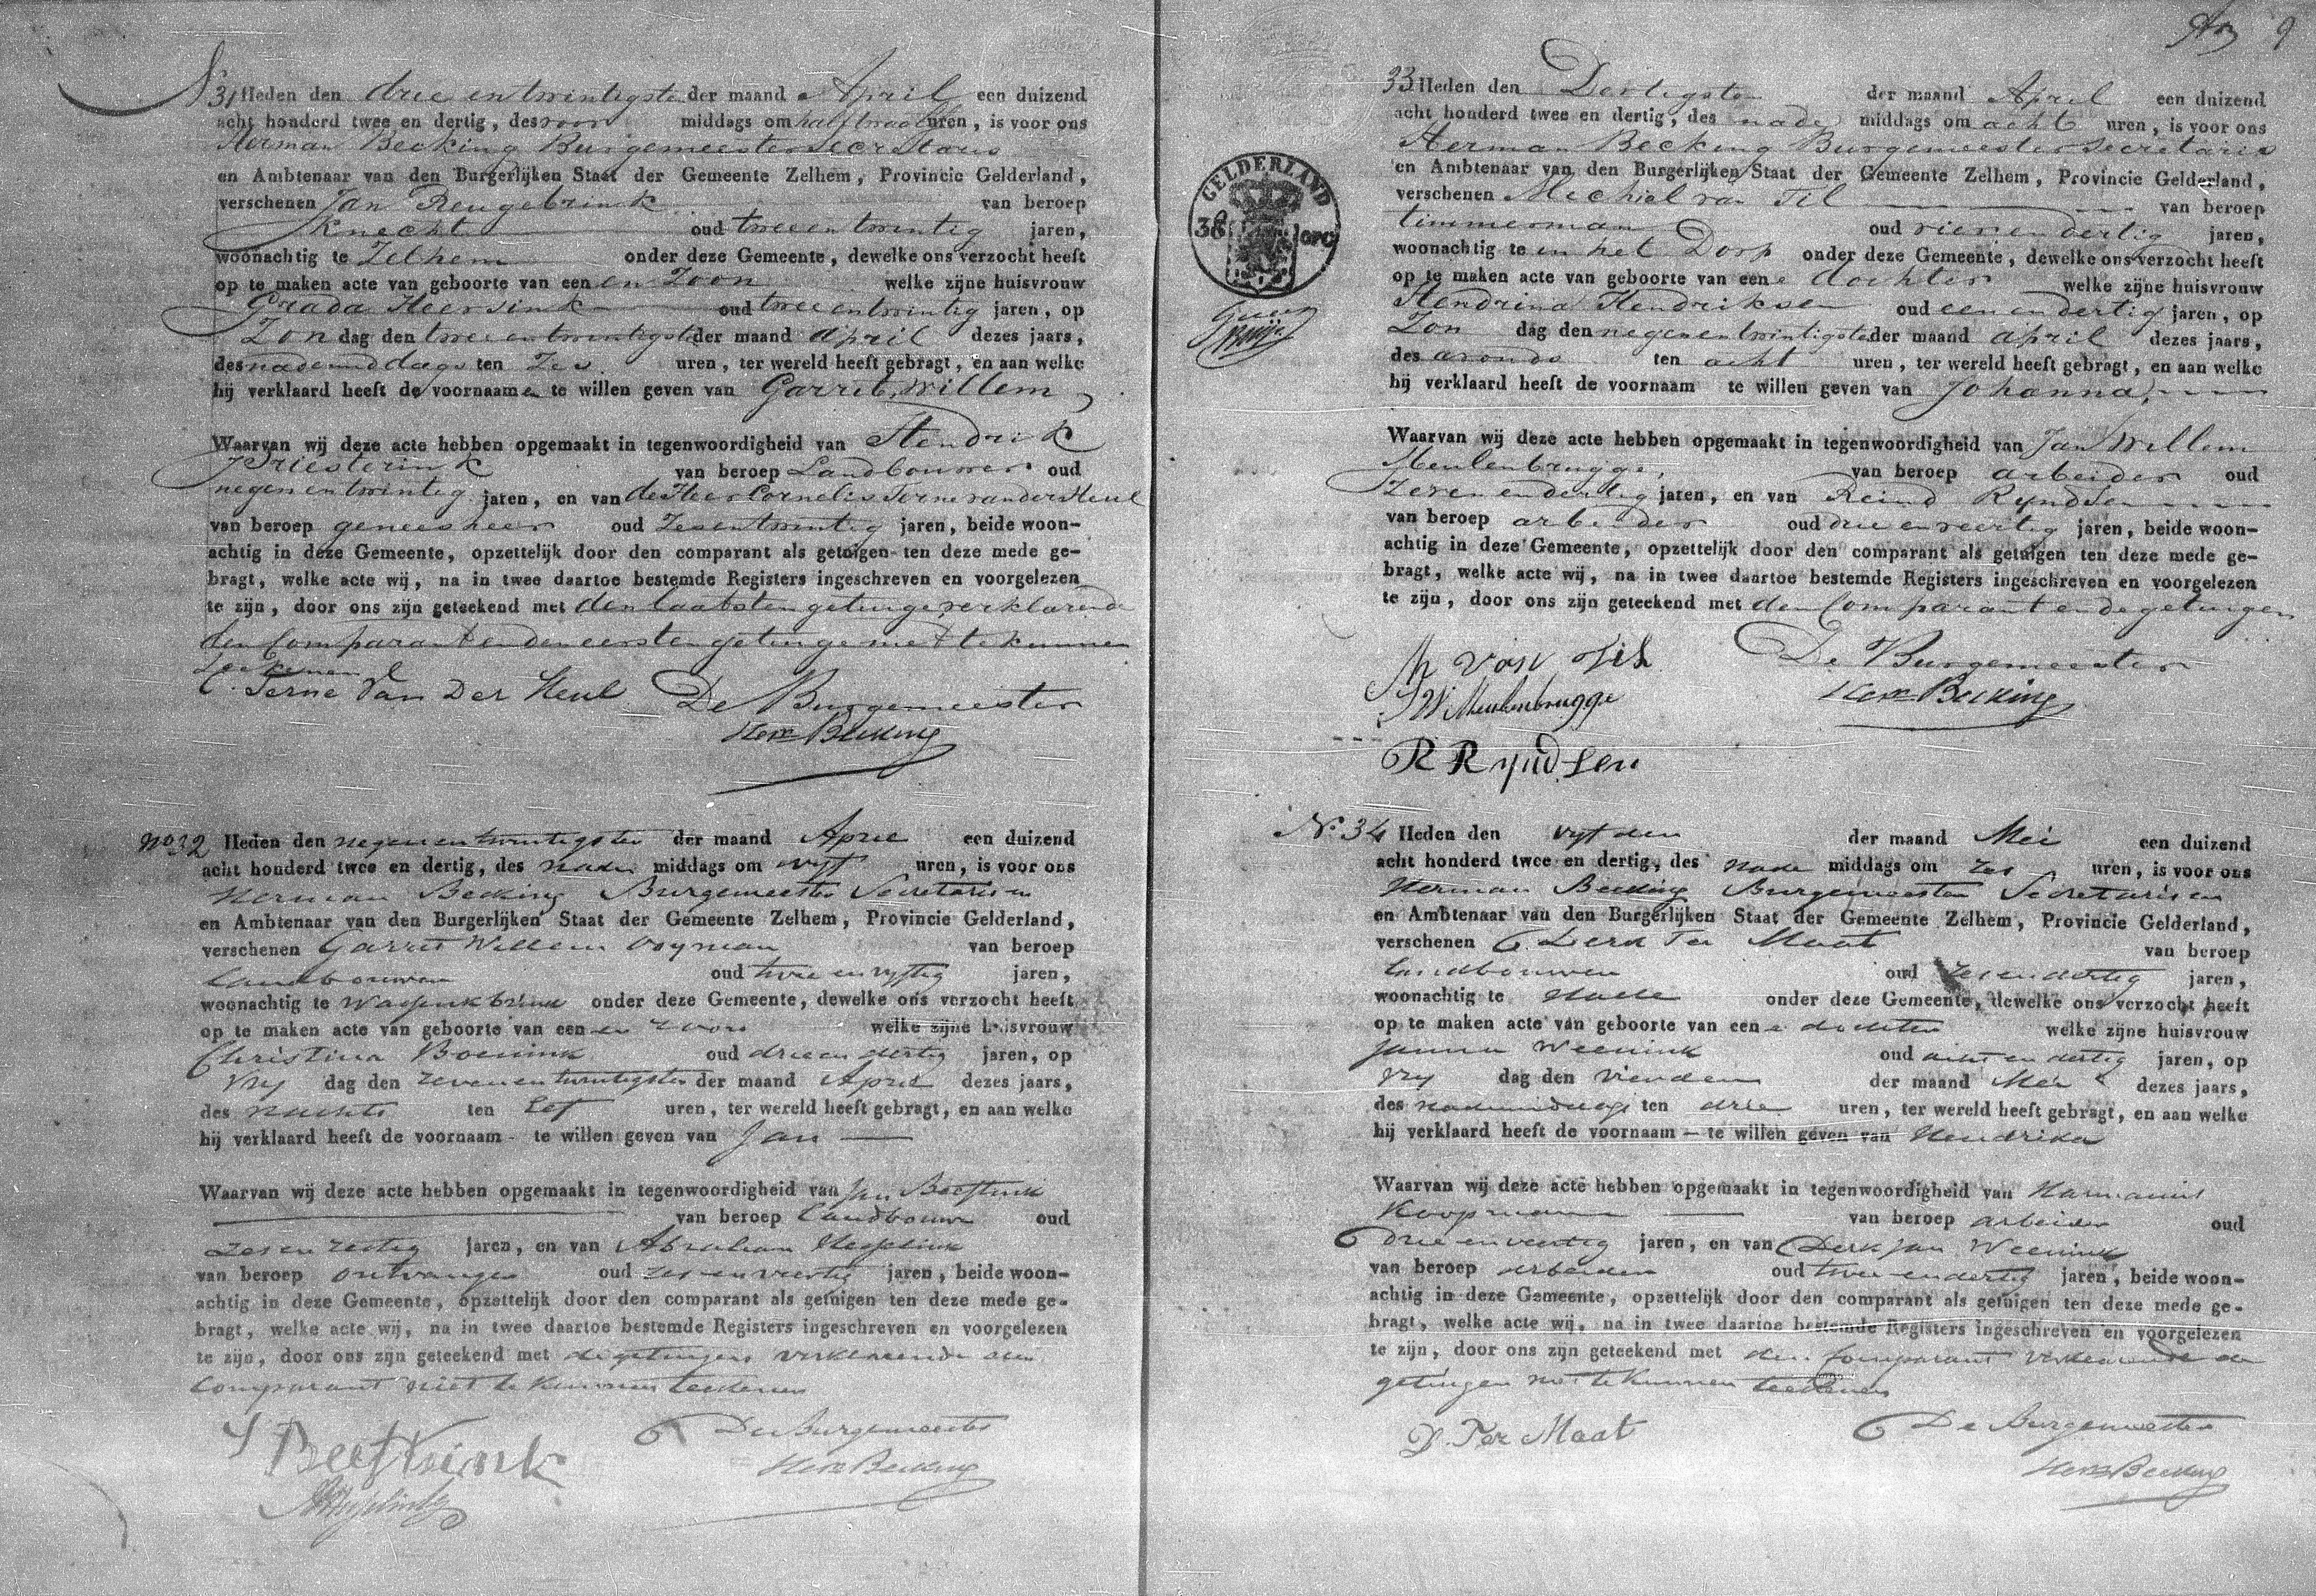 No 31 Heden den drie en twintigsten der maand April een duizend
acht honderd twee en dertig, des voor middags om half twaalf uren, is voor ons
Herman Becking Burgemeester Secretaris
en Ambtenaar van den Burgerlijken Staat der Gemeente Zelhem, Provincie Gelderland,
verschenen Jan Reugebrink van beroep
Knecht oud twee en twintig jaren,
woonachtig te Zelhem onder deze Gemeente, dewelke ons verzocht heeft
op te maken acte van geboorte van een en Zoon welke zijne huisvrouw
Graada Heersink oud twee en twintig jaren, op
Zon dag den twee en twintigste der maand april dezes jaars,
des nademiddags ten Zes uren, ter wereld heeft gebragt, en aan welke
hij verklaard heeft de voornaamen te willen geven van Garrit, Willem
Waarvan wij deze acte hebben opgemaakt in tegenwoordigheid van Hendrik
Priesterink van beroep Landbouwer oud
negen en twintig jaren, en van de Heer Cornelis Terne van der Heul
van beroep geneesheer oud Zes en twintig jaren, beide woon-
achtig in deze Gemeente, opzettelijk door den comparant als getuigen ten deze mede ge-
bragt, welke acte wij, na in twee daartoe bestemde Registers ingeschreven en voorgelezen
te zijn, door ons zijn geteekend met den laatsten getuige, verklarende
den Comparant en den eersten getuige niet te kunnen
teekenen
C. Terne Van Der Heul De Burgemeester
Herm Becking
No 32 Heden den negen en twintigsten der maand April een duizend
acht honderd twee en dertig, des nade middags om vyf uren, is voor ons
Herman Becking Burgemeester Secretaris en
en Ambtenaar van den Burgerlijken Staat der Gemeente Zelhem, Provincie Gelderland,
verschenen Garrit Willem Ooyman van beroep
Landbouwer oud twee en vyftig jaren,
woonachtig te Wassinkbrink onder deze Gemeente, dewelke ons verzocht heeft
op te maken acte van geboorte van een en zoon welke zijne huisvrouw
Christina Boenink oud drie en dertig jaren, op
Vry dag den zeven en twintigsten der maand April dezes jaars,
des nachts ten Elf uren, ter wereld heeft gebragt, en aan welke
hij verklaard heeft de voornaam - te willen geven van Jan
Waarvan wij deze acte hebben opgemaakt in tegenwoordigheid van Jan Beestink
van beroep Landbouwer oud
zes en zestig jaren, en van Abraham Hesselink
van beroep ontvanger oud zes en veertig jaren, beide woon-
achtig in deze Gemeente, opzettelijk door den comparant als getuigen ten deze mede ge-
bragt, welke acte wij, na in twee daartoe bestemde Registers ingeschreven en voorgelezen
te zijn, door ons zijn geteekend met de getuigen verklarende den
Comparant niet te kunnen teekenen
De Burgemeester
Herm Becking
9
33 Heden den Dertigsten der maand April een duizend
acht honderd twee en dertig, des nade middags om acht uren, is voor ons
Herman Becking Burgemeester Secretaris
en Ambtenaar van den Burgerlijken Staat der Gemeente Zelhem, Provincie Gelderland,
verschenen Mechiel van Til van beroep
timmerman oud vier en dertig jaren,
woonachtig te in het Dorp onder deze Gemeente, dewelke ons verzocht heeft
op te maken acte van geboorte van een e dochter welke zijne huisvrouw
Hendrina Hendriksen oud een en dertig jaren, op
Zon dag den negen en twintigste der maand april dezes jaars,
des avonds ten acht uren, ter wereld heeft gebragt, en aan welke
hij verklaard heeft de voornaam te willen geven van Johanna,
Waarvan wij deze acte hebben opgemaakt in tegenwoordigheid van Jan Willem
Meulenbrugge, van beroep arbeider oud
Zeven en dertig jaren, en van Reind Ryndsen
van beroep arbeider oud drie en veertig jaren, beide woon-
achtig in deze Gemeente, opzettelijk door den comparant als getuigen ten deze mede ge-
bragt, welke acte wij, na in twee daartoe bestemde Registers ingeschreven en voorgelezen
te zijn, door ons zijn geteekend met den Comparant en de getuigen
M van Til De Burgemeester
J W Meulenbrugge Herm Becking
R Ryndsen
GELDERLAND
38 OPC
No 34 Heden den vyfden der maand Mei een duizend
acht honderd twee en dertig, des nade middags om zes uren, is voor ons
Herman Becking Burgemeester Secretaris en
en Ambtenaar van den Burgerlijken Staat der Gemeente Zelhem, Provincie Gelderland,
verschenen Derk Ter Maat van beroep
Landbouwer oud zes en dertig jaren,
woonachtig te Halle onder deze Gemeente, dewelke ons verzocht heeft
op te maken acte van geboorte van een e dochter welke zijne huisvrouw
Janna Weenink oud acht en dertig jaren, op
Vry dag den vierden der maand Mei dezes jaars,
des nademiddags ten drie uren, ter wereld heeft gebragt, en aan welke
hij verklaard heeft de voornaam - te willen geven van Hendrika
Waarvan wij deze acte hebben opgemaakt in tegenwoordigheid van Harmanus
Koopman van beroep arbeider oud
drie en veertig jaren, en van Derk Jan Weenink
van beroep arbeider oud twee en dertig jaren, beide woon-
achtig in deze Gemeente, opzettelijk door den comparant als getuigen ten deze mede ge-
bragt, welke acte wij, na in twee daartoe bestemde Registers ingeschreven en voorgelezen
te zijn, door ons zijn geteekend met den Comparant verklarende de
getuigen niet te kunnen teekenen
D. Ter Maat De Burgemeester
Herm Becking